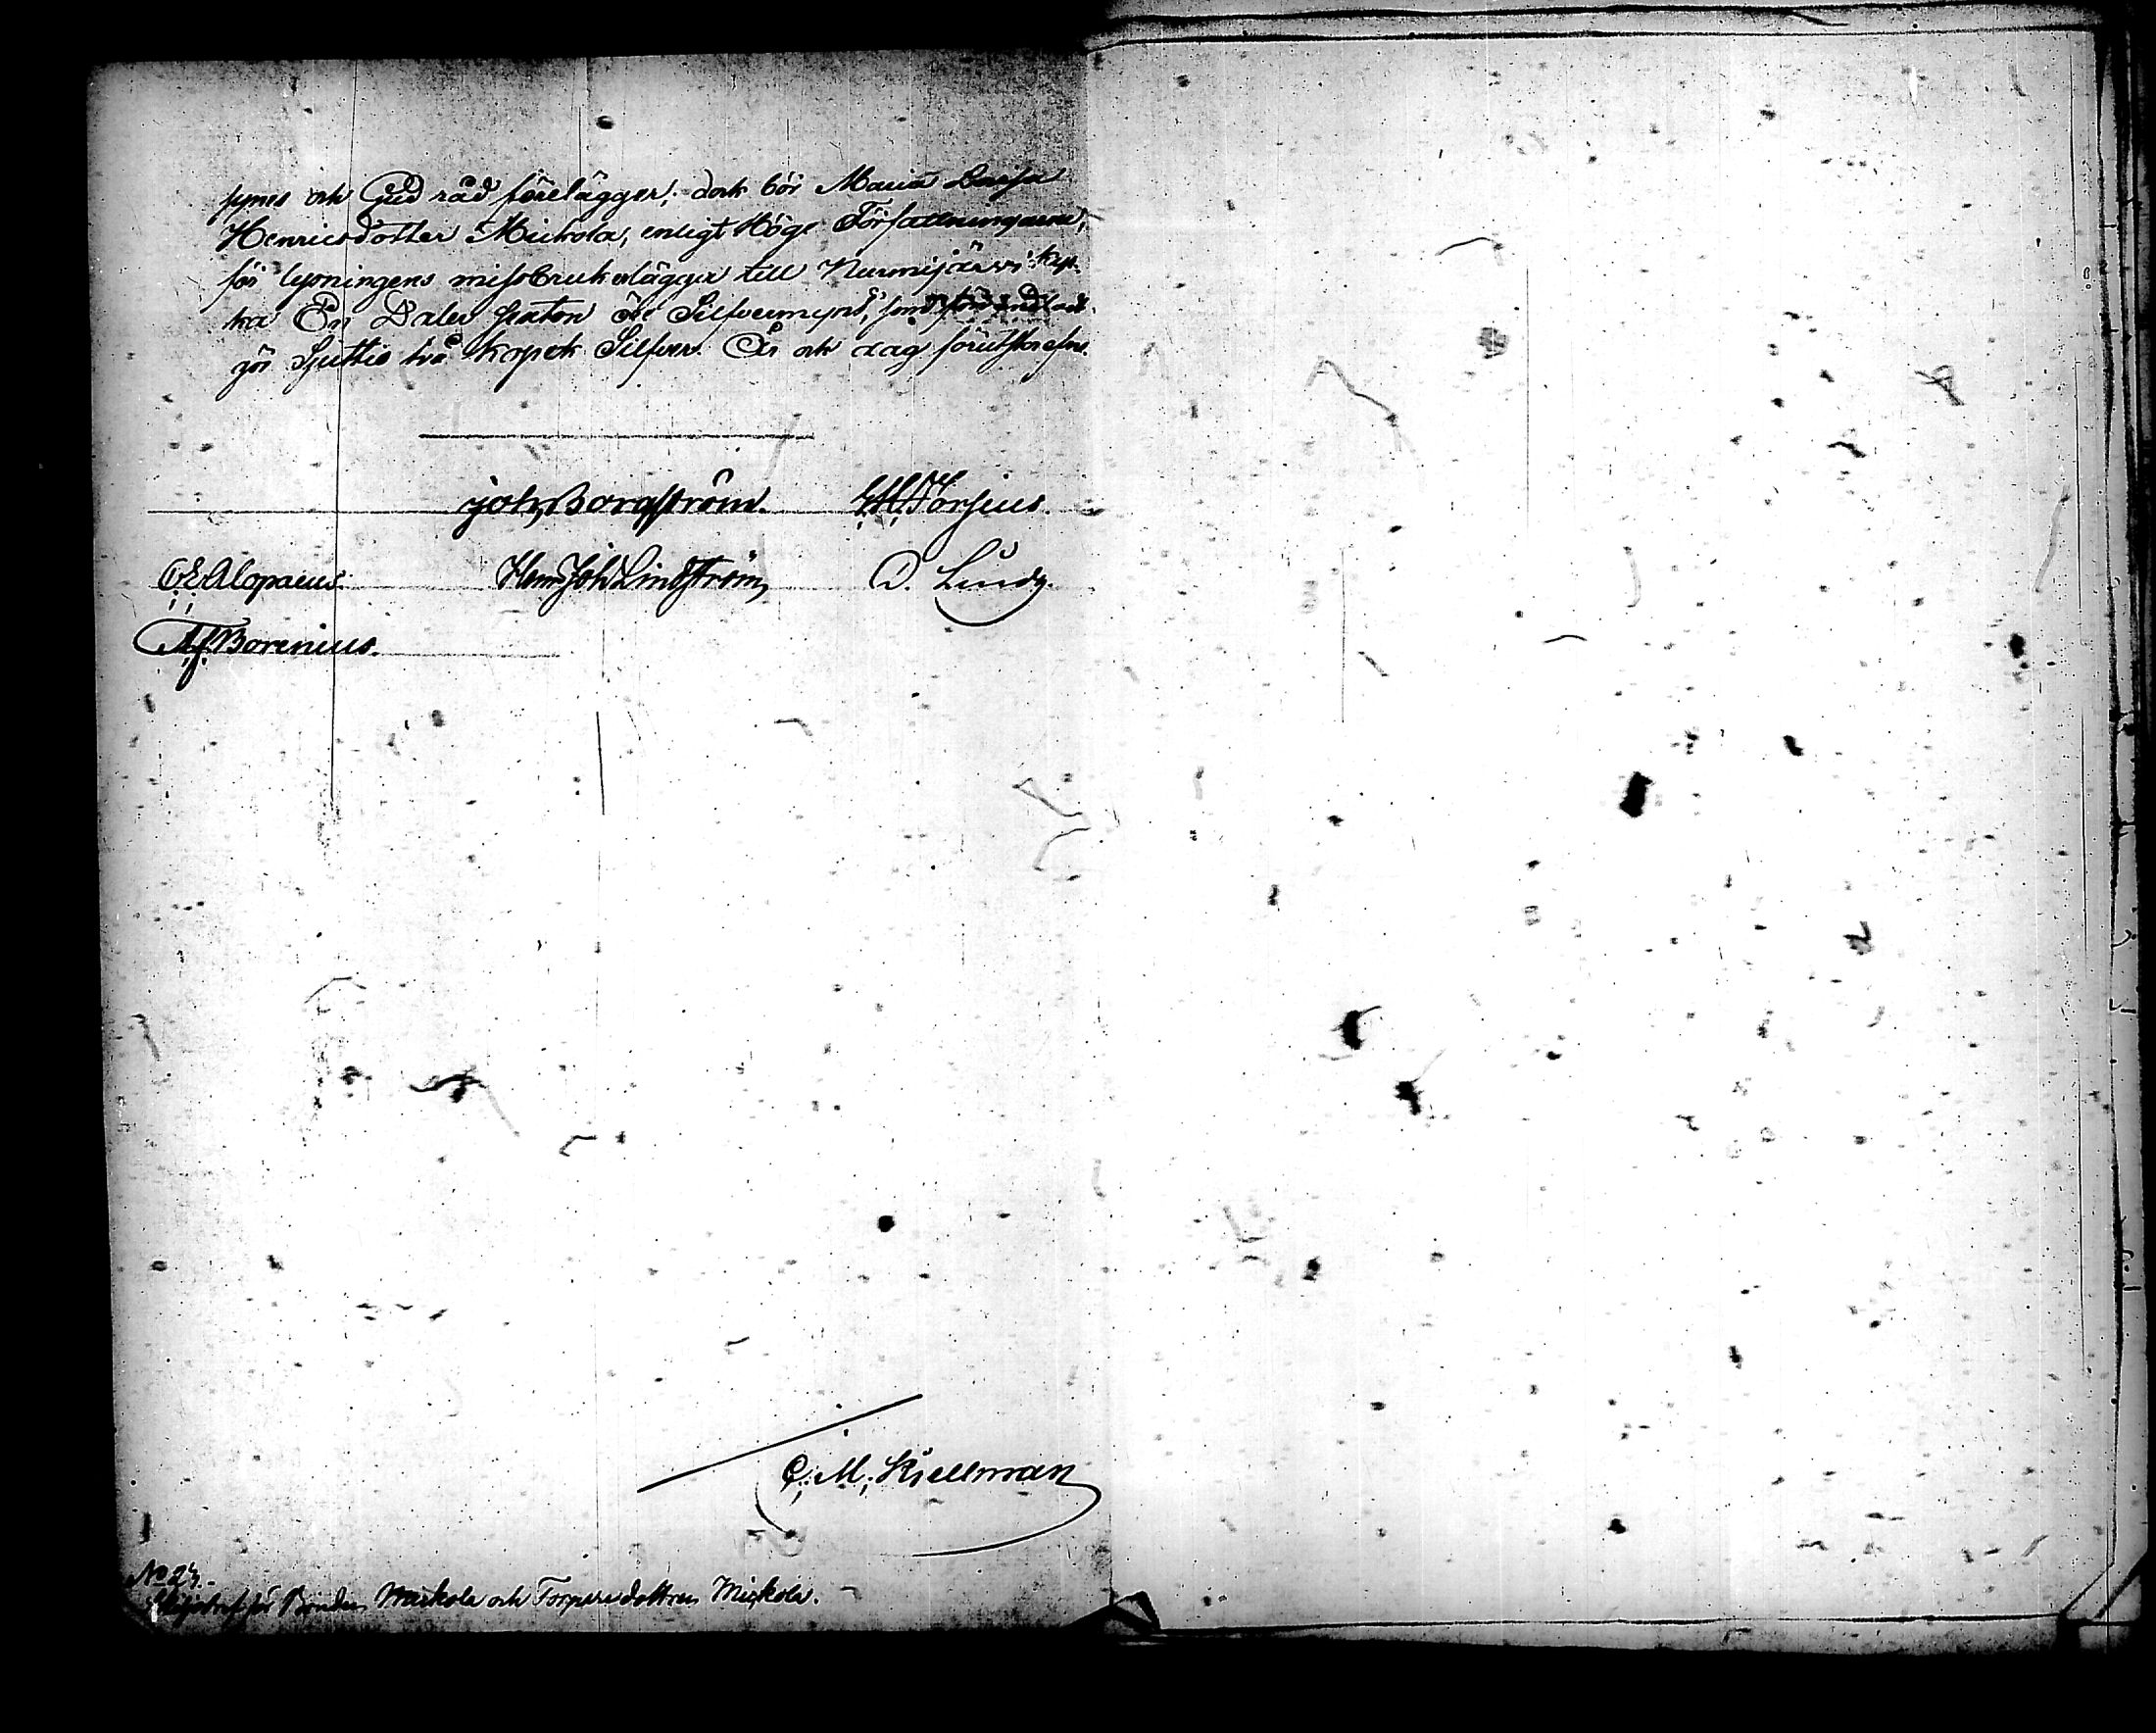 synes och Gud råd förelägger; dock bör Maria Lovisa
Henricsdotter Mickola, enligt Höge Författningarne,
för lysningens missbruk erlägga till Nurmijärvi kyr-
ka En Daler sexton öre Silfvermynt, som
gör Sjuttio två kopek Silfver. År och dag förutskrefne.
Joh. Borgström. Forsius.
C. E. Alopaeus. Henr. Joh. Lindström, O. Lindh.
Borenius.
C. M. Kiellman
No 24.
för Bonden Maikola och Torparedottren Mickola.